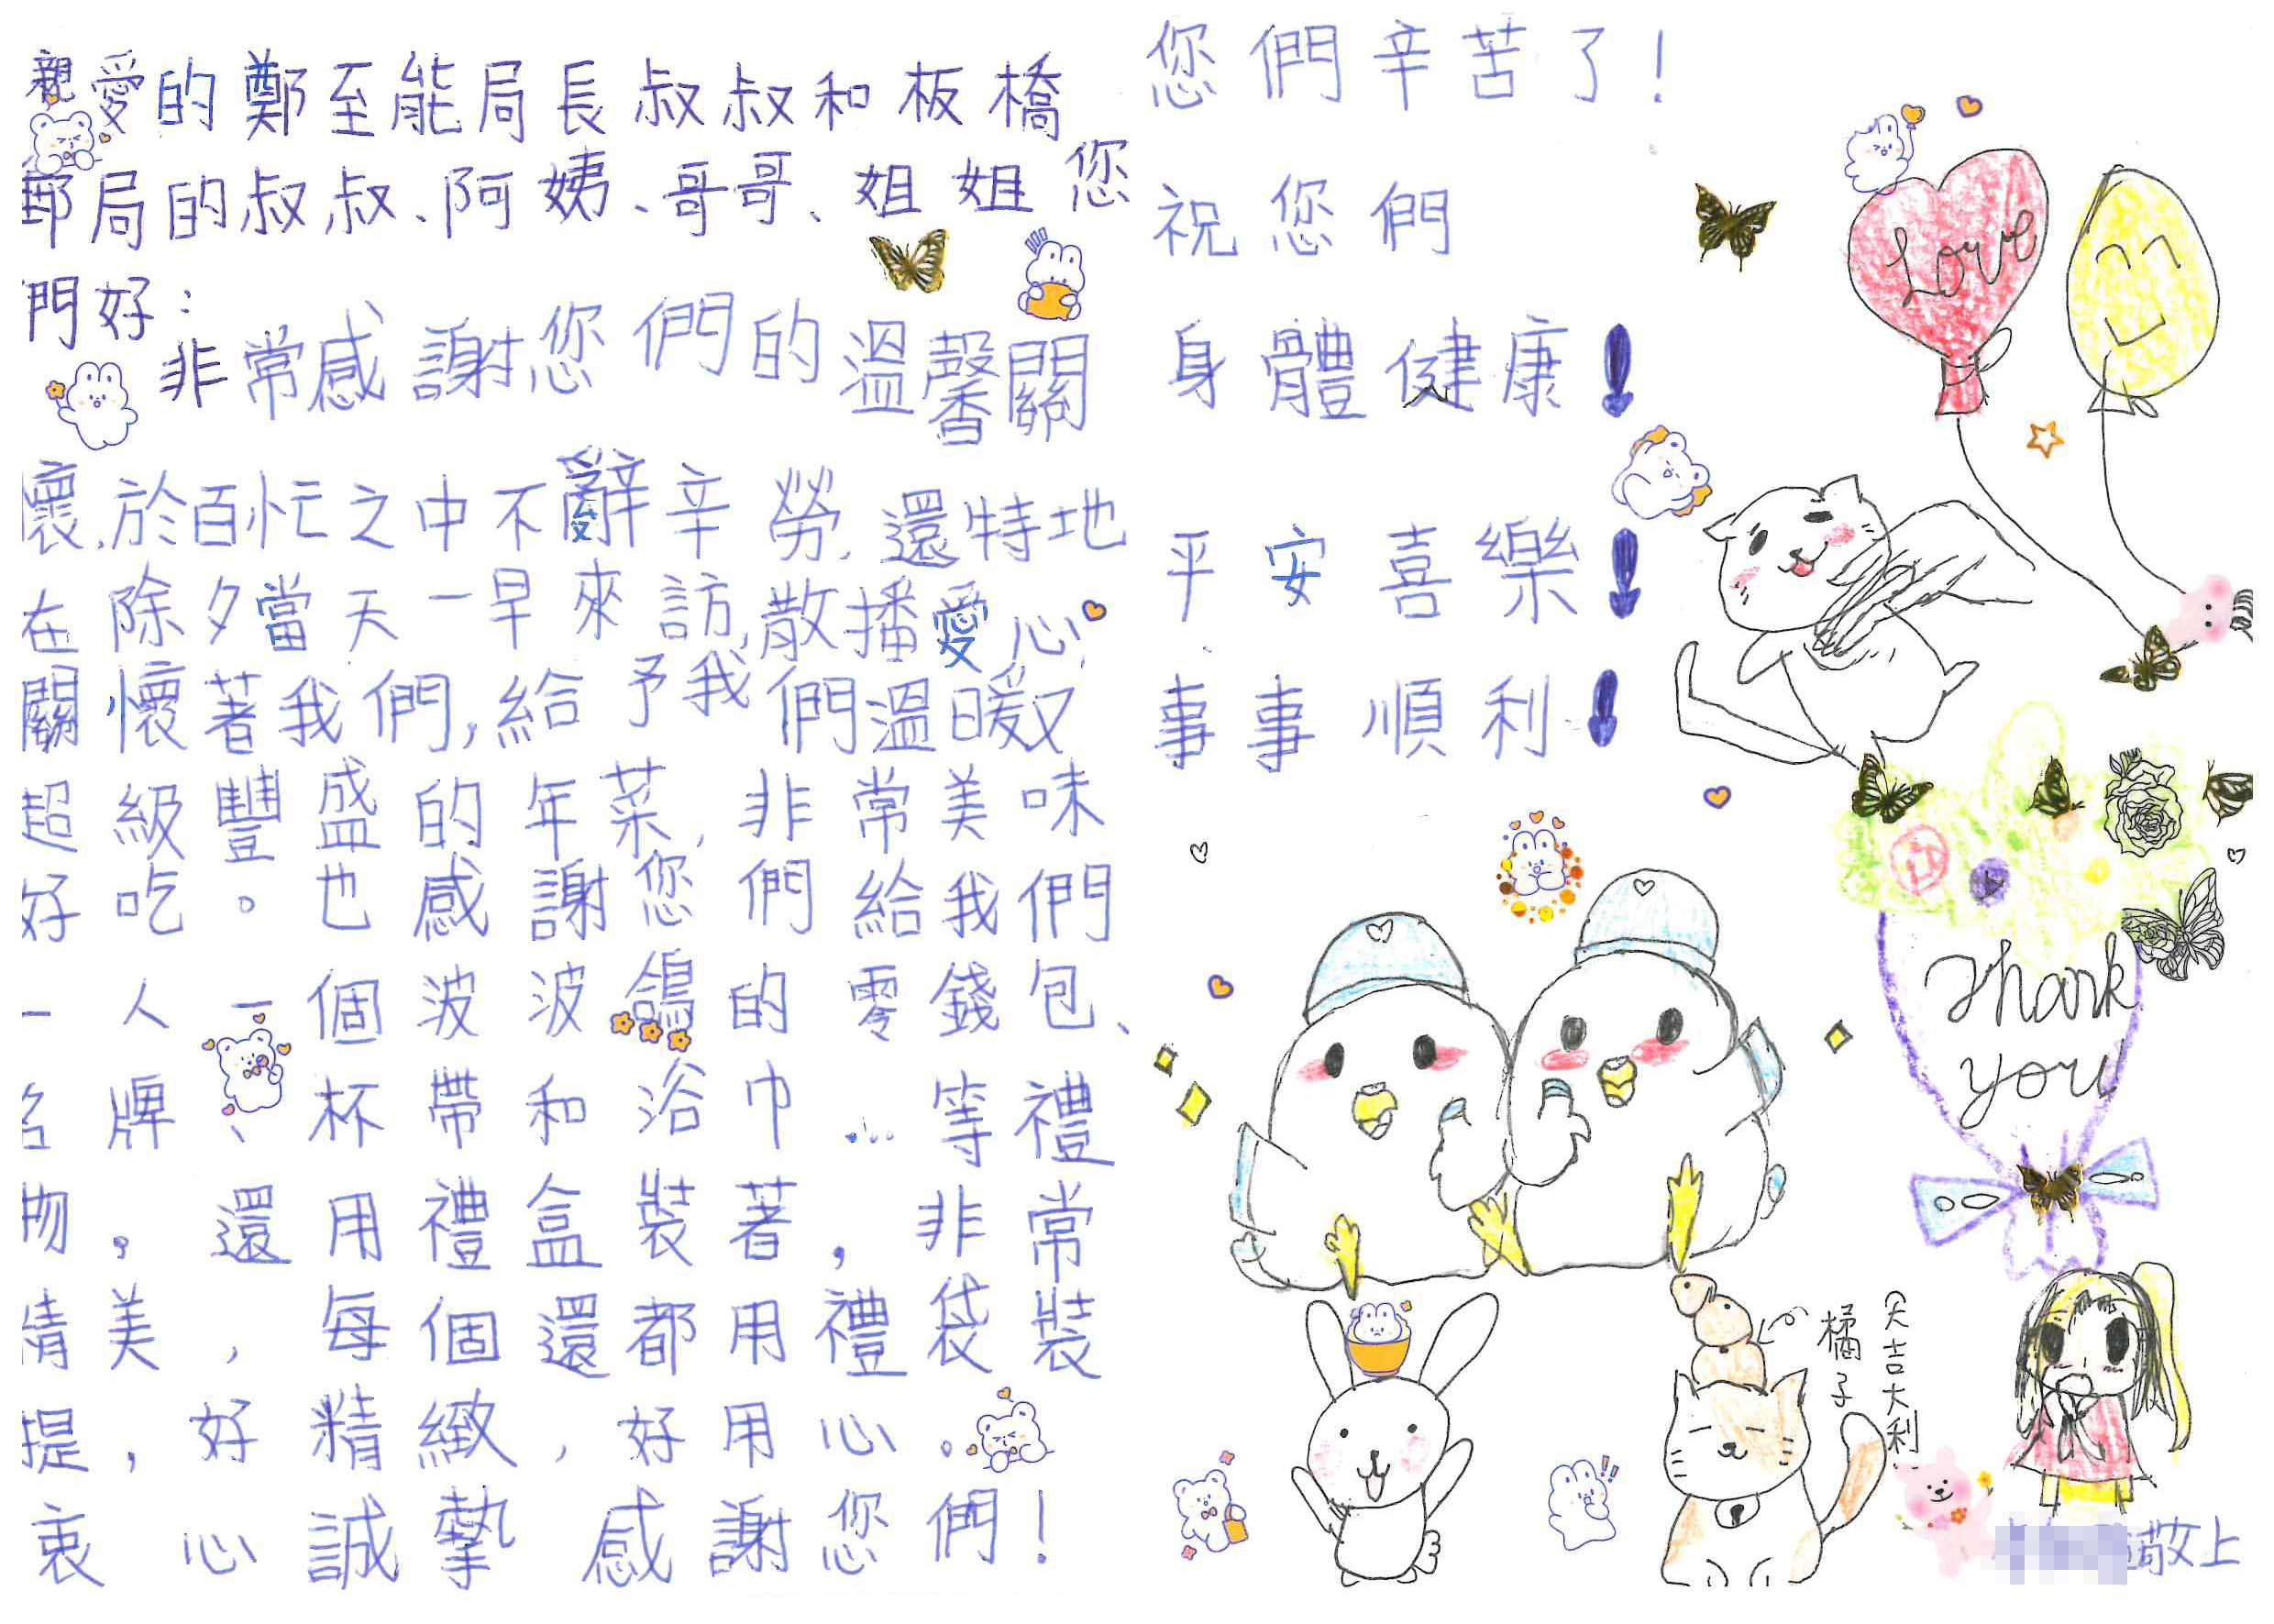 親愛的鄭至能局長叔叔和板橋
郵局的叔叔、阿姨、哥哥、姐姐您
們好：
非常感謝您們的溫馨關
懷,於百忙之中不辭辛勞,還特地
在除夕當天一早來訪,散播愛心,
關懷著我們,給予我們溫暖又
超級豐盛的年菜,非常美味
好吃。也感謝您們給我們
一人一個波波鴿的零錢包、
名牌、杯帶和浴巾…等禮
物。還用禮盒裝著,非常
精美,每個還都用禮袋裝
提,好精緻,好用心。
衷心誠摯感謝您們!
您們辛苦了!
祝您們
身體健康!
平安喜樂!
事事順利!
Love
Thank
you
橘子
大吉大利
敬上